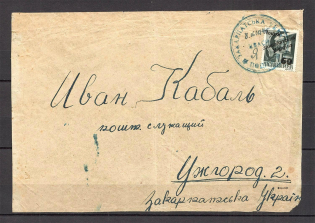 60
Иван Кабаль
пошт. служащий
Ужгород. 2.
Закарпатська Україн